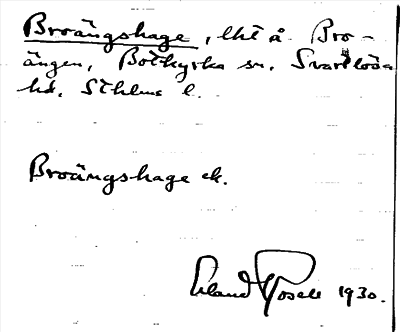 Broängshage, lht å Bro-
ängen, Botkyrka sn. Svartlösa
hd. Sthlms l.
Broängshage ek.
Erland Rosell 1930.